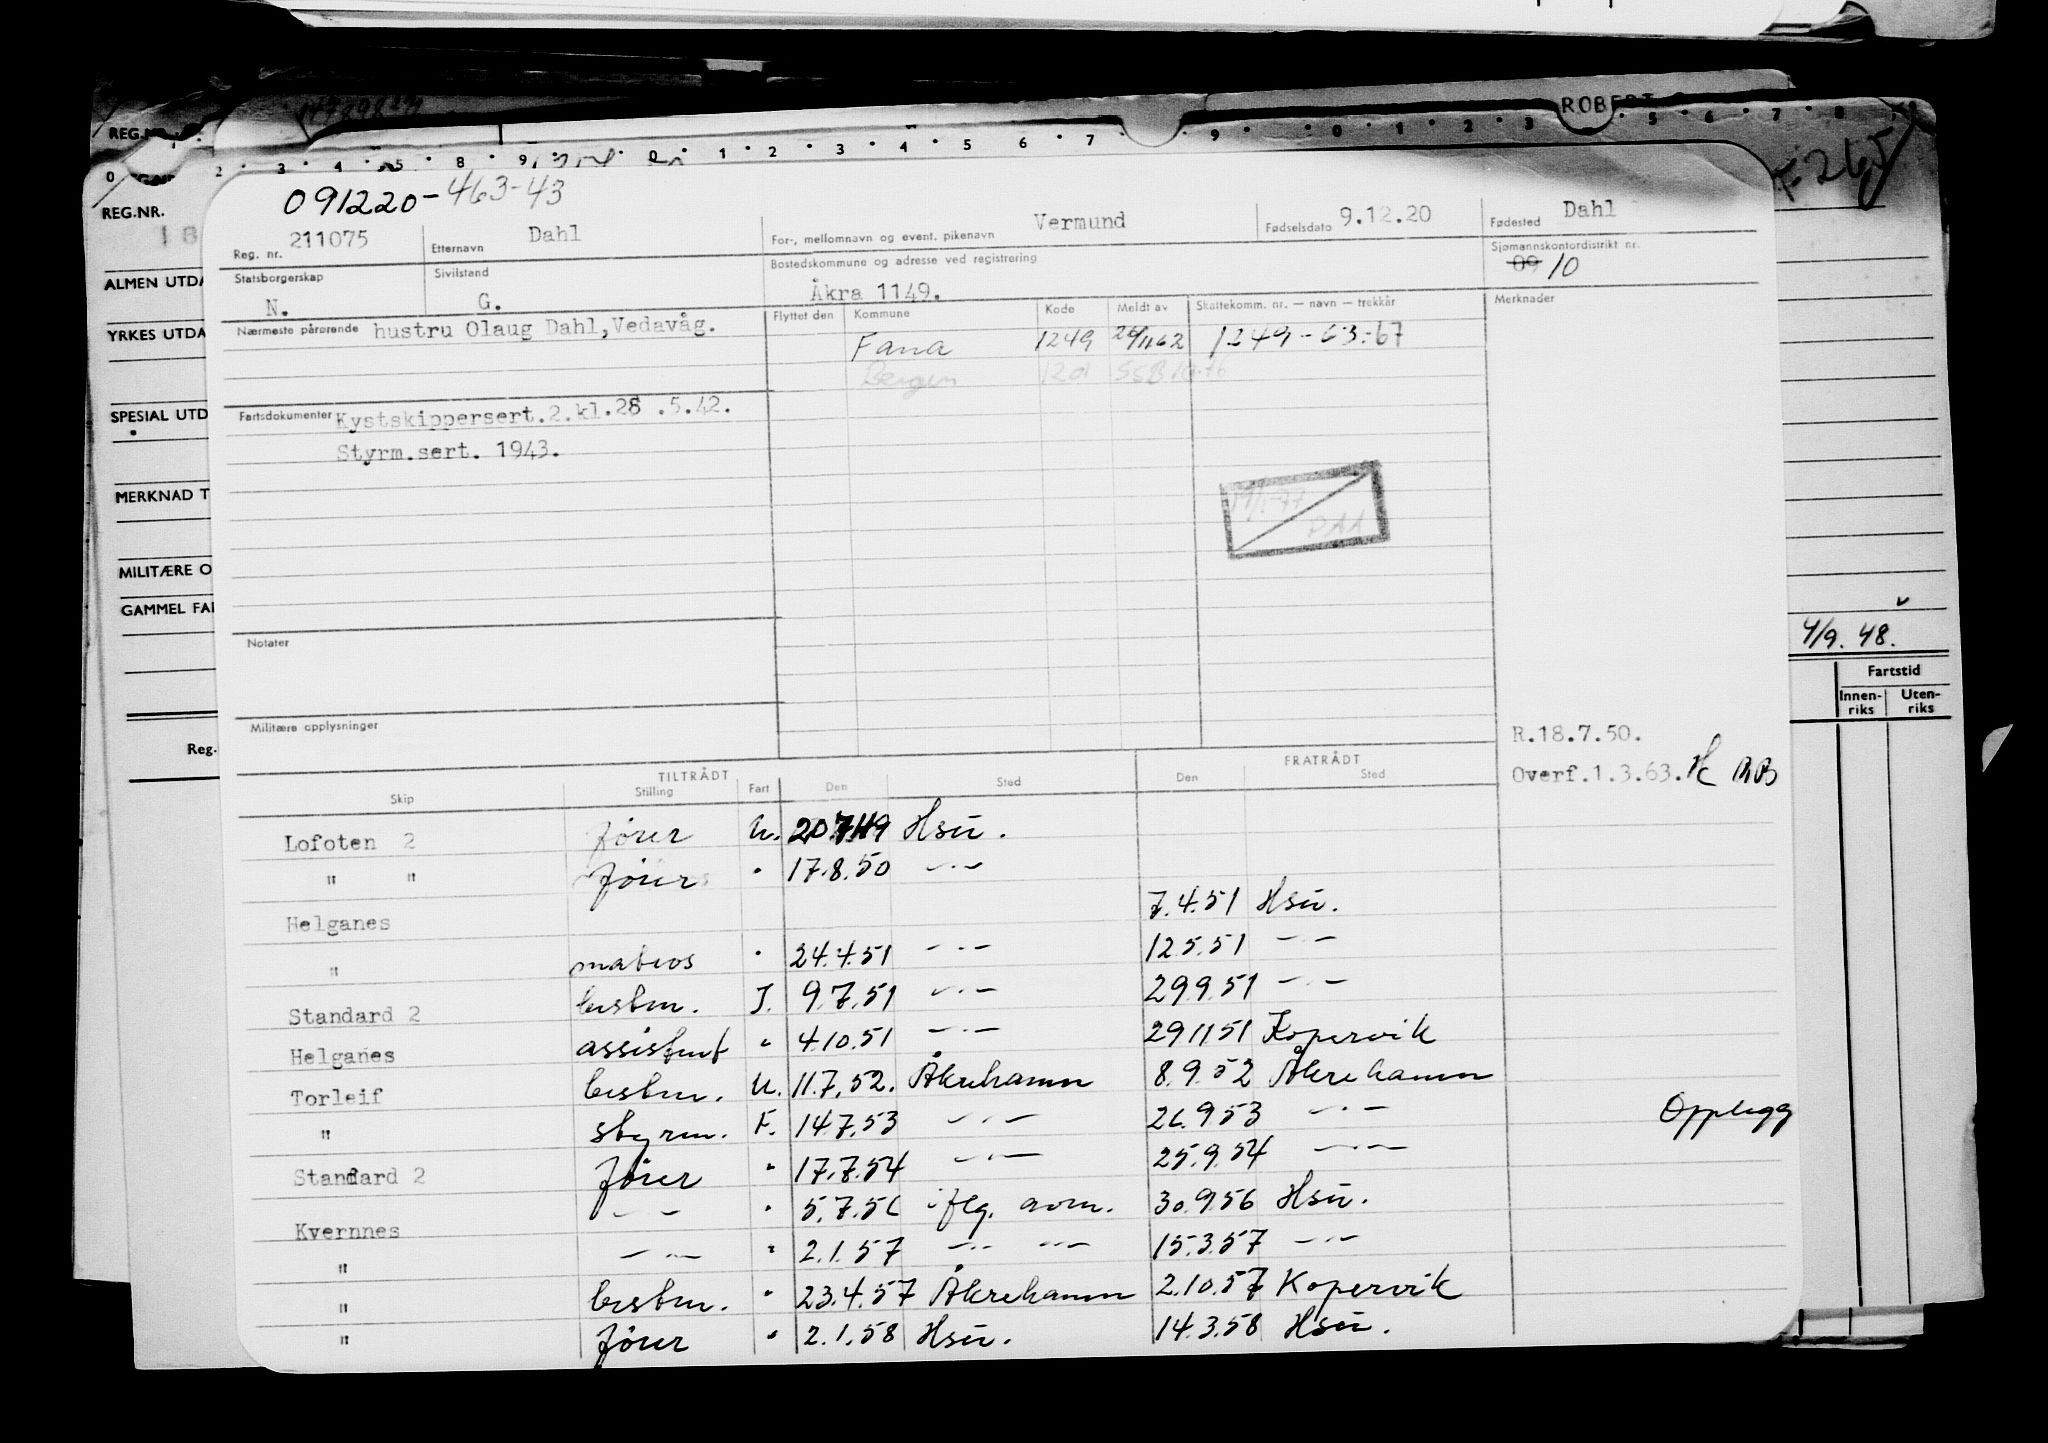 ROBERT
REG.NR.
0 2 3 4 5 8 9 0 1 2 3 4 5 6 7 9 0 1 2 3 5 6 7 8
REG.NR.
18
ALMEN UTDA
YRKES UTDA
SPESIAL UTD
MERKNAD T
MILITÆRE O
GAMMEL FAR
Reg.
4/9. 48.
Fartstid
Innen-riks Uten-riks
091220-463-43
Reg. nr. 211075 Etternavn Dahl For-, mellomnavn og event. pikenavn Vermund Fødselsdato 9.12.20 Fødested Dahl
Statsborgerskap N. Sivilstand G. Bostedskommune og adresse ved registrering Åkra 1149. Sjømannskontordistrikt nr. 09 10
Nærmeste pårørende hustru Olaug Dahl, Vedavåg.
Flyttet den Kommune Kode Meldt av Skattekomm. nr. — navn — trekkår Merknader
Fana 1249 26/11 62 1249-63-67
Bergen 1201 SSB 10.76
Fartsdokumenter Kystskippersert.2.kl.28 .5.42.
Styrm.sert. 1943.
Notater
Militære opplysninger
R.18.7.50.
Overf.1.3.63.
TILTRÅDT FRATRÅDT
Skip Stilling Fart Den Sted Den Sted
Lofoten 2 fører U. 20.7.49 Hsu.
" " fører " 17.8.50 -"-
Helganes 7.4.51 Hsu.
" matros " 24.4.51 -"- 12.5.51 -"-
Standard 2 bestm. I. 9.7.51 -"- 29.9.51 -"-
Helganes assistent " 4.10.51 -"- 29.11.51 Kopervik
Torleif bestm. U. 11.7.52. Åkrehamn 8.9.52 Åkrehamn
" styrm. F. 14.7.53 -"- 26.9.53 -"- Opplegg
Standard 2 fører " 17.7.54 -"- 25.9.54 -"-
Kvernnes -"- " 5.7.56 iflg. avm. 30.9.56 Hsu.
" -"- " 2.1.57 -"- -"- 15.3.57 -"-
" bestm. " 23.4.57 Åkrehamn 2.10.57 Kopervik
" fører " 2.1.58 Hsu. 14.3.58 Hsu.